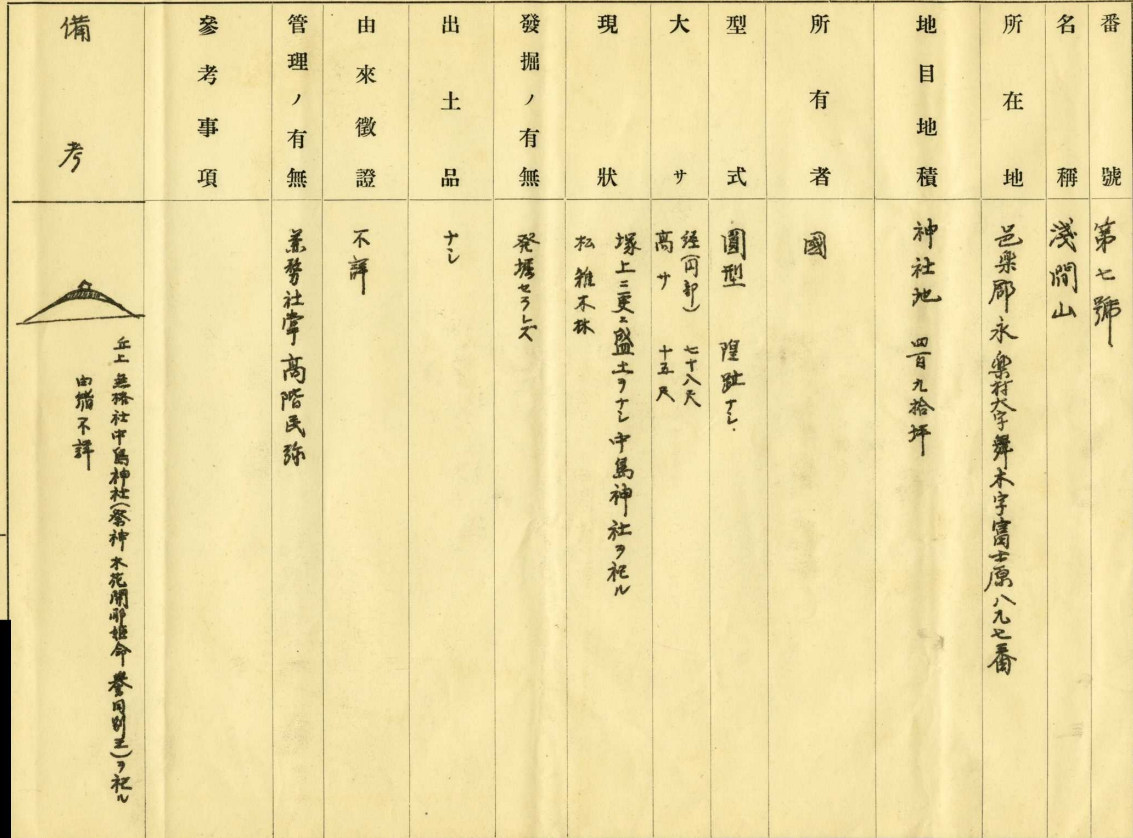 番號
第七號
名稱
淺間山
所在地
邑楽郡永楽村大字舞木字富士原八九七番
地目地積
神社地 四百九拾坪
所有者
國
型式
圓型 隍趾ナシ.
大サ
径(円部) 七十八尺
高サ 十五尺
現狀
塚上ニ更ニ盛土ヲナシ中島神社ヲ祀ル
松雑木林
發掘ノ有無
発掘セラレズ
出土品
ナシ
由來徵證
不詳
管理ノ有無
兼務社掌 高階民弥
參考事項
備考
丘上 無格社中島神社(祭神 木花開耶姫命 誉田別王)ヲ祀ル
由緒不詳